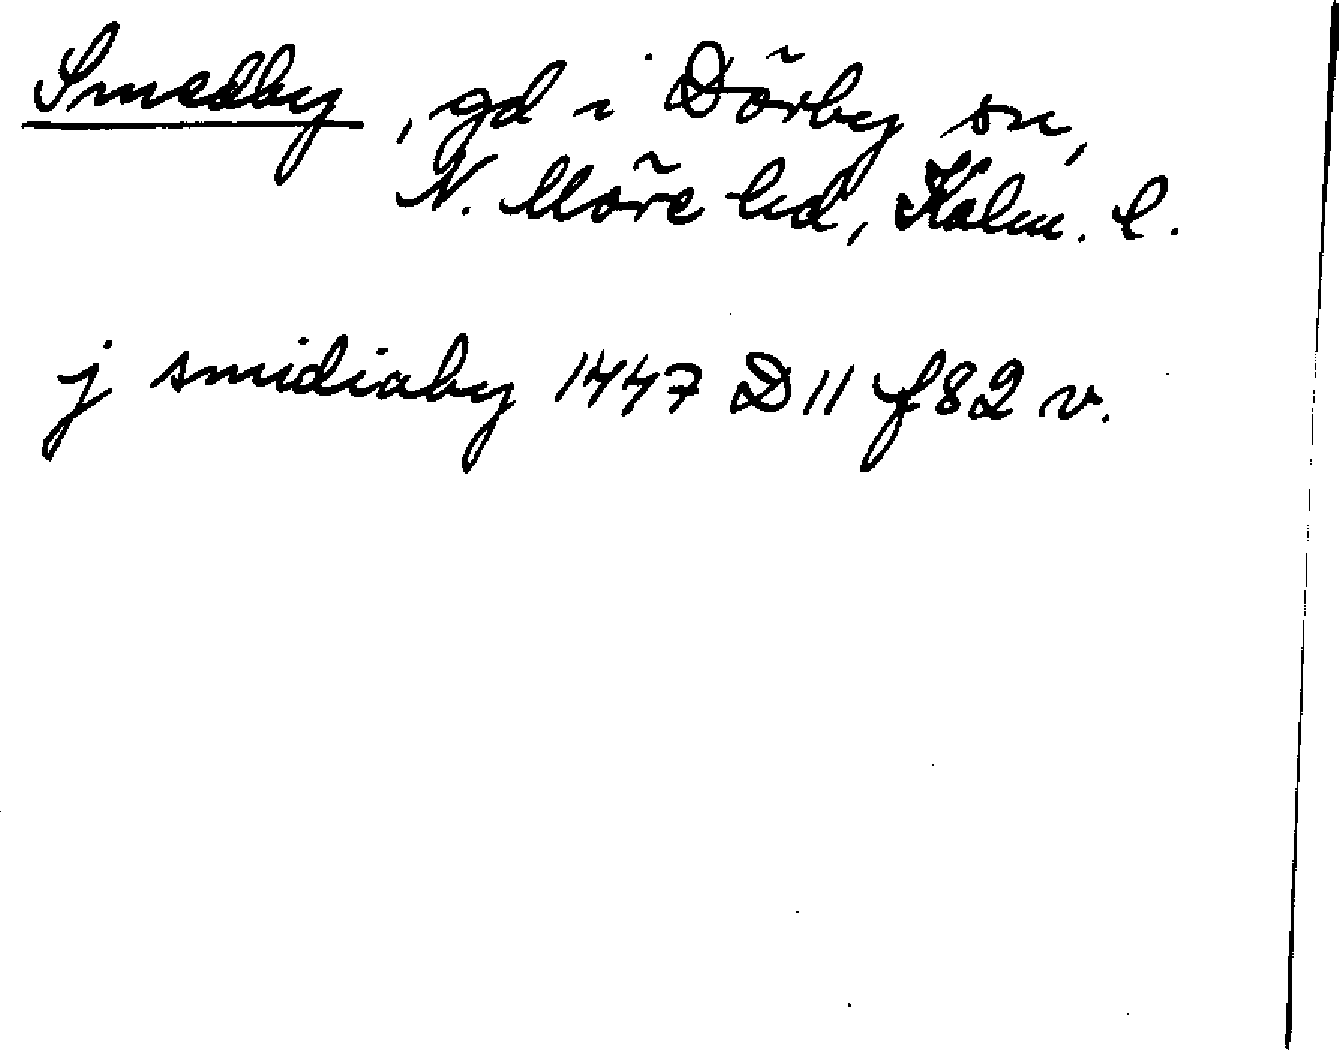 Smedby, gd i Dörby sn,
N. Möre hd, Kalm. l.
j smidiaby 1447 D 11 f 82 v.